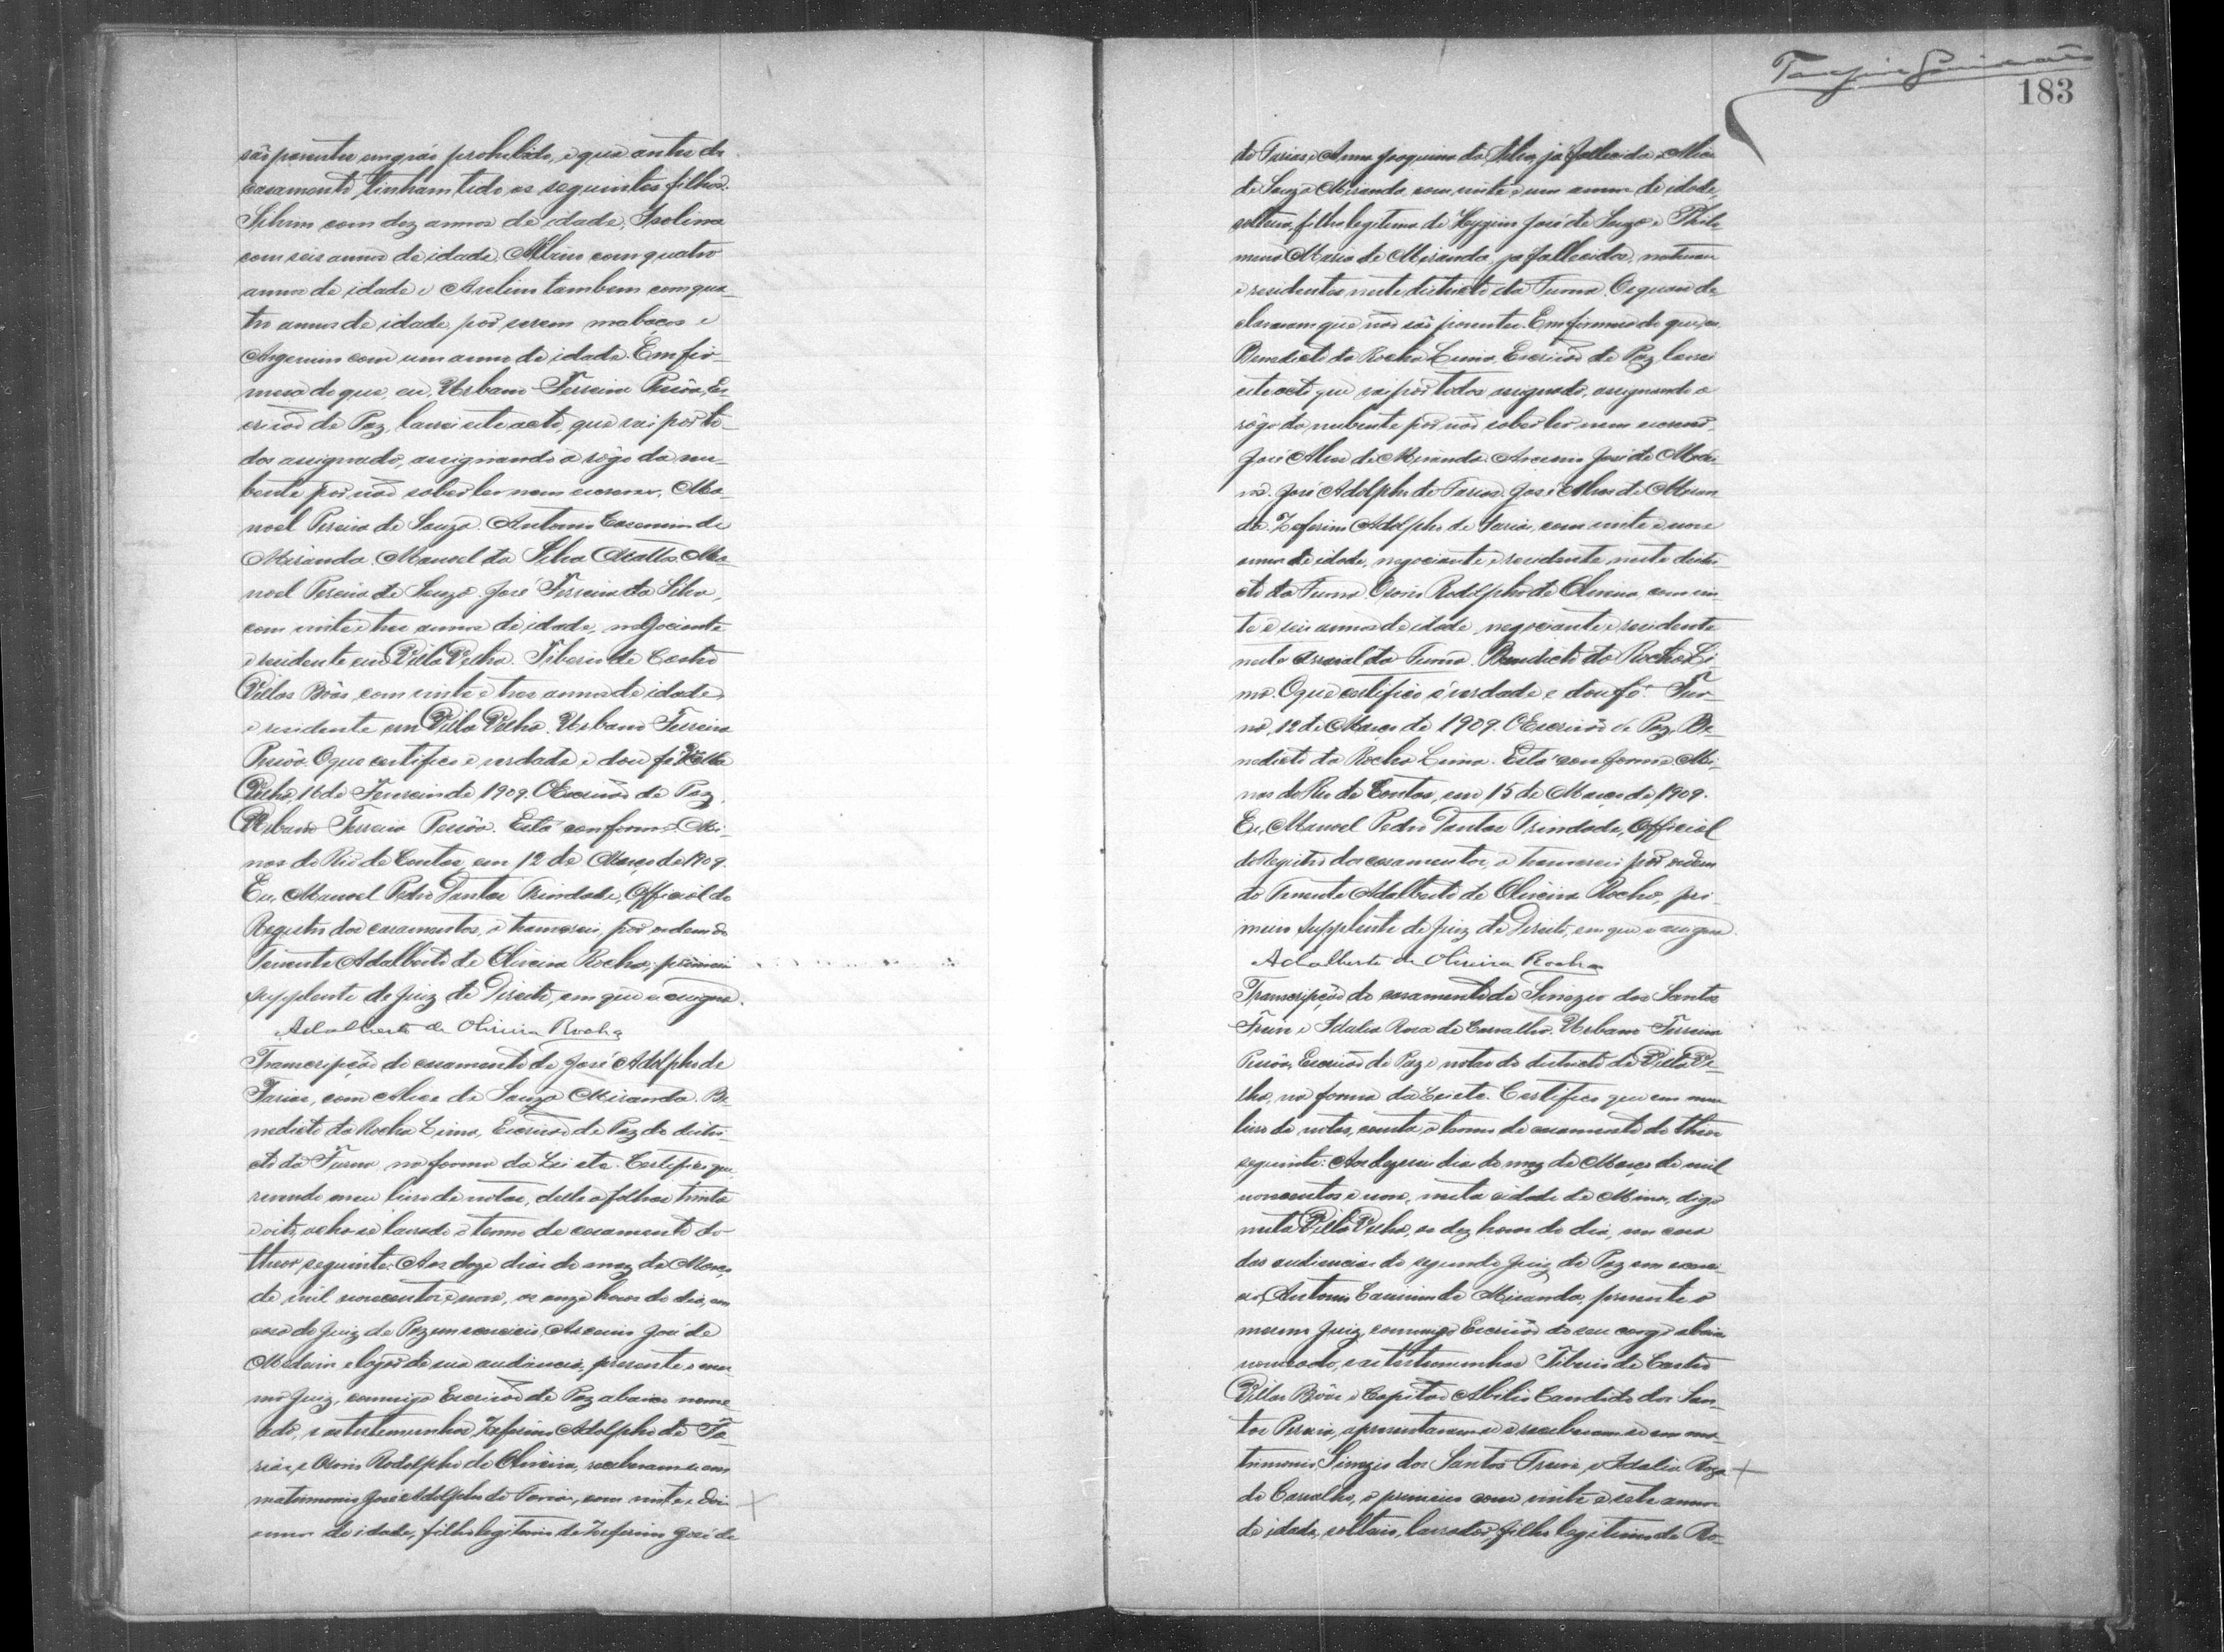 são parentes em gráo prohibido, e que antes do
casamento tinham tido os seguintes filhos.
Silvino com dez annos de idade, Isolina
com seis annos de idade, Albino com quatro
annos de idade e Avelino tambem com qua-
tro annos de idade por serem mabaços e
com um anno de idade. Em fir-
mesa do que, eu, Urbano Ferreira Pessôa, Es-
crivão de Paz, lavrei este acto, que vai por to-
dos assignado, assignando a rôgo da nu-
bente por não saber ler nem escrever, Ma-
noel Pereira de Souza. Antonio Cassimiro de
Miranda. Manoel da Silva Mattos. Ma-
noel Pereira de Souza. José Ferreira da Silva,
com vinte e tres annos de idade, negociante
e residente em Villa Velha. Tiberio de Castro
Villas Bôas, com vinte e tres annos de idade
e residente em Villa Velha. Urbano Ferreira
Pessôa. O que certifico é verdade e dou fé. Villa
Velha, 16 de Fevereiro de 1909. O Escrivão de Paz,
Urbano Ferreira Pessôa. Está conforme. Mi-
nas do Rio de Contas, em 12 de Março de 1909.
Eu, Manoel Pedro Dantas Trindade, Official do
Registro dos casamentos, o transcrevi, por ordem do
Tenente Adalberto de Oliveira Rocha, primeiro
supplente de Juiz de Direito, em que assigna.
Adalberto de Oliveira Rocha
Transcripção do casamento de José Adolpho de
Farias, com Alice de Souza Miranda. Be-
nedicto da Rocha Lima, Escrivão de Paz do distri-
cto da Furna na forma da Lei etc. Certifico que,
revendo meu livro de notas, delle a folhas trinta
e oito, acha-se lavrado o termo de casamento do
theor seguinte: Aos doze dias do mez de Março
de mil novecentos e nove, as onze horas do dia, em
casa do Juiz de Paz em exercicio, José de
e logar de sua audiencia, presente o mes-
mo Juiz, commigo Escrivão de Paz abaixo nome-
ado, e as testemunhas Zeferino Adolpho de Fa-
rias, e Osorio Rodolpho de Oliveira, receberam-se em
matrimonio José Adolpho de Farias, com vinte e dois
annos de idade, filho legitimo de Zeferino José de
183
de Farias e Anna Joaquina da Silva, já fallecida e Alice
de Souza Miranda, com vinte e um annos de idade,
solteira, filha legitima de Hygino José de Souza e Philo-
mena Maria de Miranda, já fallecidos, naturaes
e residentes neste districto da Furna. Os quaes de-
clararam que não são parentes. Em firmeza do que, eu,
Benedicto da Rocha Lima, Escrivão de Paz, lavrei
este acto que vai por todos assignado, assignando a
rôgo da nubente por não saber ler nem escrever,
José Alves de Miranda. José de
José Adolpho de Farias. José Alves de Miran-
da. Zeferino Adolpho de Farias, com vinte e nove
annos de idade, negociante e residente neste distri-
cto da Furna. Osorio Rodolpho de Oliveira, com vin-
te e seis annos de idade, negociante e residente
neste arraial da Furna. Benedicto da Rocha Li-
ma. O que certifico é verdade e dou fé. Fur-
na, 12 de Março de 1909. O Escrivão de Paz, Be-
nedicto da Rocha Lima. Está conforme. Mi-
nas do Rio de Contas, em 15 de Março de 1909.
Eu, Manoel Pedro Dantas Trindade, Official
do Registro dos casamentos, o transcrevi por ordem
do Tenente Adalberto de Oliveira Rocha, pri-
meiro supplente de Juiz de Direito, em que assigna.
Adalberto de Oliveira Rocha
Transcripção do casamento de dos Santos
e Idalia Rosa de Carvalho. Urbano Ferreira
Pessôa, Escrivão de Paz e notas do districto de Villa Ve-
lha, na forma da Lei etc. Certifico que em meu
livro de notas, consta o termo de casamento do theor
seguinte: Aos dezesseis dias do mez de Março de mil
novecentos e nove, nesta cidade de Minas, digo
nesta Villa Velha, as dez horas do dia, em casa
das audiencias do segundo Juiz de Paz em exerci-
cio, Antonio Cassimiro de Miranda, presente o
mesmo Juiz, commigo Escrivão do seu cargo abaixo
nomeado, e as testemunhas Tiberio de Castro
Villas Bôas e Capitão Abilio Candido dos San-
tos Pereira, apresentaram-se e receberam-se em ma-
trimonio dos Santos e Idalia Rosa
de Carvalho, o primeiro com vinte e sete annos
de idade, solteiro, lavrador, filho legitimo de Ro-